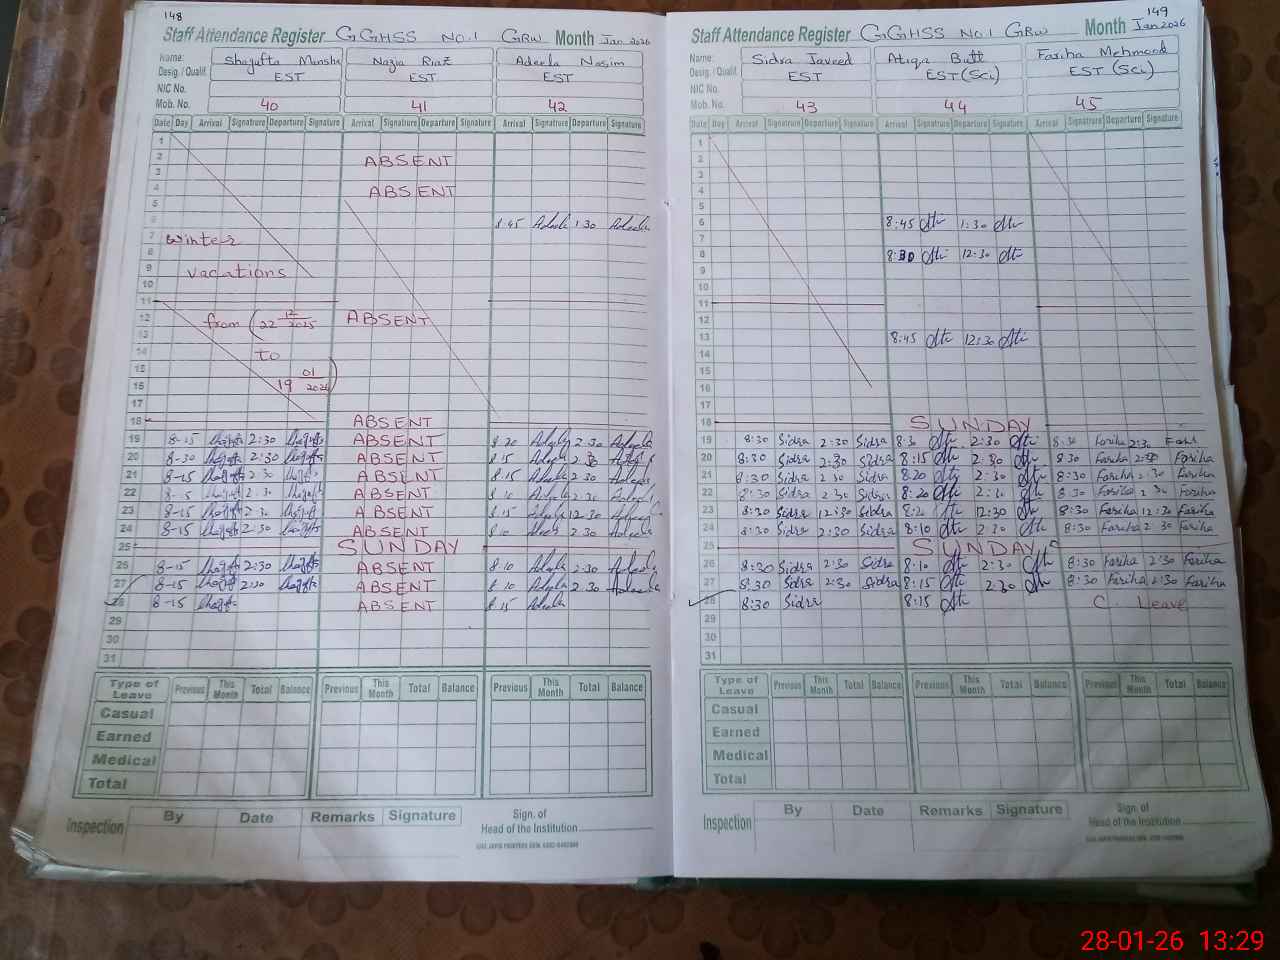 148
Staff Attendance Register GGHSS NO.1 GRW Month Jan 2026
Name: Shagufta Mansha Nazia Riaz Adeela Nasim
Desig. / Qualif. EST EST EST
NIC No.
Mob. No. 40 41 42
Date Day Arrival Signature Departure Signature Arrival Signature Departure Signature Arrival Signature Departure Signature
1
2 ABSENT
3
4 ABSENT
5
6 8 45 Adeela 1 30 Adeela
7 winter
8
9 vacations
10
11
12 from (22 12/2025 ABSENT
13
14 to
15
16 19 01/2026)
17
18 ABSENT
19 8-15 2:30 ABSENT 8 20 2:30
20 8-30 2:30 ABSENT 8 15 2 30
21 8-15 2 30 ABSENT 8.15 2:30
22 2.30 ABSENT 8 10
23 8-15 ABSENT 8.15 12:30
24 8-15 2:30 ABSENT 8 10 2 30
25 SUNDAY
26 8-15 2:30 ABSENT 8 10 2:30
27 8-15 ABSENT 8 10 2.30
28 8-15 ABSENT 8 15 Adeela
29
30
31
Type of Leave Previous This Month Total Balance Previous This Month Total Balance Previous This Month Total Balance
Casual
Earned
Medical
Total
Inspection By Date Remarks Signature Sign. of Head of the Institution
149
Staff Attendance Register GGHSS NO.1 GRW Month Jan 2026
Name: Sidra Javeed Atiqa Butt Fariha Mehmood
Desig. / Qualif. EST EST (Sci) EST (Sci)
NIC No.
Mob. No. 43 44 45
Date Day Arrival Signature Departure Signature Arrival Signature Departure Signature Arrival Signature Departure Signature
1
2
3
4
5
6 8:45 Ati 1:30 Ati
7
8 8:30 Ati 12:30 Ati
9
10
11
12
13 8:45 Ati 12:30 Ati
14
15
16
17
18 SUNDAY
19 8:30 Sidra 2:30 Sidra 8:30 Ati 2:30 Ati 8:30 Fariha 2:30
20 8:30 Sidra 2:30 Sidra 8:15 Ati 2:30 Ati 8 30 Fariha Fariha
21 8:30 Sidra 2 30 Sidra 8:20 Ati 2:30 Ati 8:30 Fariha 2.30 Fariha
22 8:30 Sidra 2 30 Sidra 8:20 Ati Ati 8 30 Fariha 2 30 Fariha
23 8:30 Sidra 12:30 Sidra Ati 12:30 Ati 8:30 Fariha 12:30 Fariha
24 8:30 Sidra 2:30 Sidra 8:10 Ati 2:30 Ati 8:30 Fariha 2:30 Fariha
25 SUNDAY
26 8:30 Sidra 2:30 Sidra 8:10 Ati 2:30 Ati 8:30 Fariha 2:30 Fariha
27 8:30 Sidra 2:30 Sidra 8:15 Ati 2:30 Ati 8:30 Fariha 2:30 Fariha
28 8:30 Sidra 8:15 Ati C. Leave
29
30
31
Type of Leave Previous This Month Total Balance Previous This Month Total Balance Previous This Month Total Balance
Casual
Earned
Medical
Total
Inspection By Date Remarks Signature Sign. of Head of the Institution
28-01-26 13:29